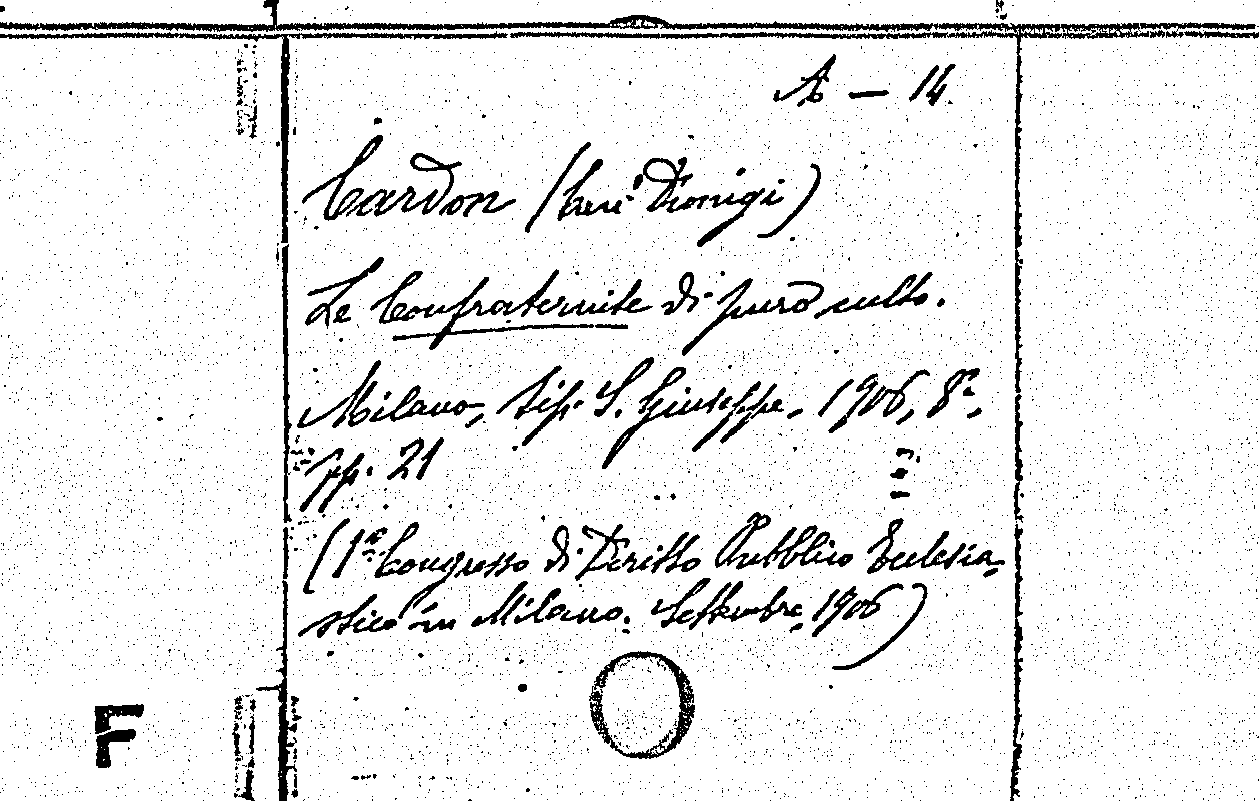 A — 14
Cardon (Can.º Dionigi)
Le Confraternite di puro culto.
Milano, tip. S. Giuseppe, 1906, 8º,
pp. 21
(1º Congresso di Diritto Pubblico Ecclesia-
stico in Milano. Settembre, 1906)
F